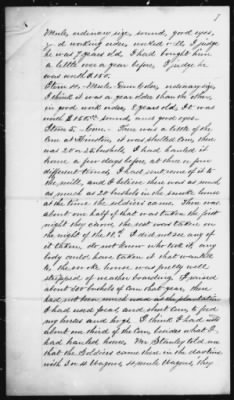 Mule, ordinary size, sound, good eyes,
good working order, worked well I judge
he was 7 years old. I had bought him
a little over a year before, I judge he
was worth $150.
Item 4. Mule. ordinary size,
I think it was a year older than the other,
in good work order, 8 years old, It was
worth $150.00 sound, and good eyes.
Item 5 - Corn - There was a little of the
Corn at Kinston, it was shelled Corn, about
20 or 25 bushels, I had hauled it
home a few days before, at three or four
different times, I had sent some of it to
the mill, and I believe there was as much
as much as 20 bushels in the smoke house
at the time the soldiers came. There was
about one half of that was taken the first
night they came the rest was taken on
the night of the 12th I did not see any of
it taken, do not know who took it, any
body could have taken it that wanted
to, the smoke house was pretty well
stripped of weather boarding. I raised
about 500 bushels of corn that year, there
had not been much used on the plantation
I had used peas, and short corn, to feed
my horses and hogs. I think I had
about one third of the Corn, besides what I
had hauled home. Mr Stanley told me
that the Soldiers came there in the daytime
with 3 or 4 Wagons, 4 mule Wagons, they